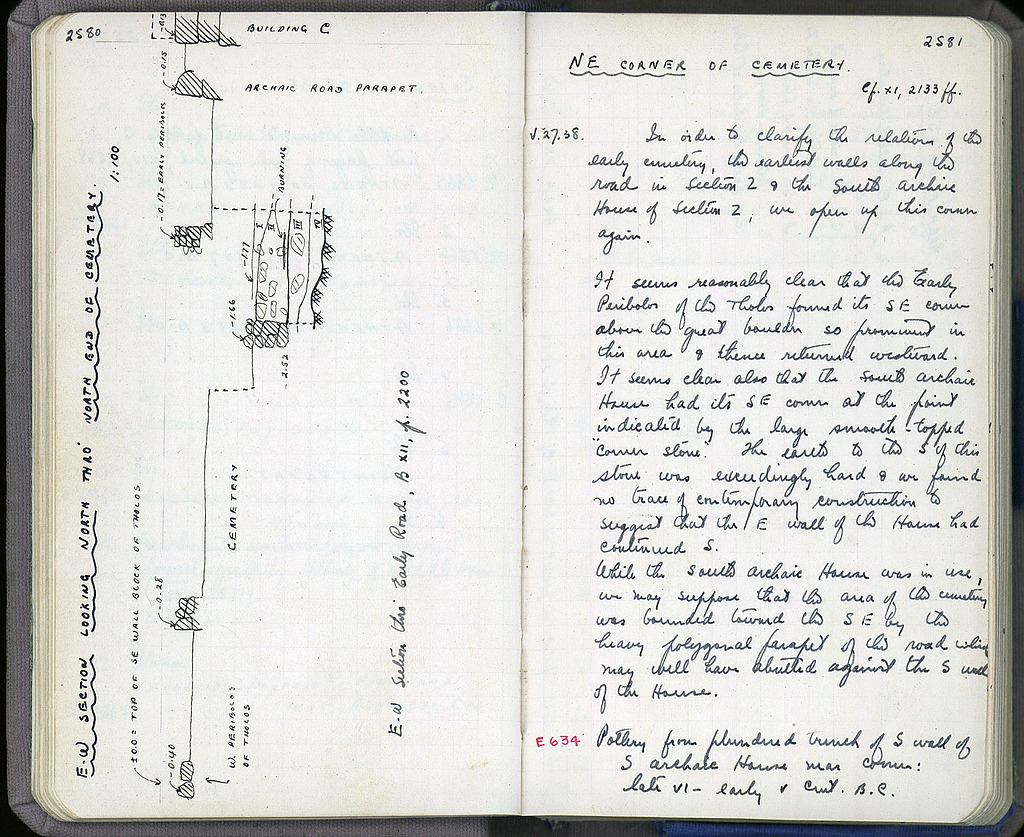 2580
BUILDING C
ARCHAIC ROAD PARAPET.
E-W SECTION LOOKING NORTH THRO' NORTH END OF CEMETERY.
1:100
±0.0 = TOP OF SE WALL BLOCK OF THOLOS.
-0.15
-0.17 = EARLY PERIBOLOS
BURNING
I
II
III
IV
-1.77
-1.66
-2.52
CEMETERY
-0.28
-0.40
W. PERIBOLOS
OF THOLOS
E-W Section thro' Early Road, B XII, p. 2200
2581
NE CORNER OF CEMETERY.
Cf. XI, 2133 ff.
V.27.38.
In order to clarify the relation of the
early cemetery, the earliest walls along the
road in Section Z & the South archaic
House of Section Z, we open up this corner
again.
It seems reasonably clear that the Early
Peribolos of the Tholos formed its SE corner
above the great boulder so prominent in
this area & thence returned westward.
It seems clear also that the South archaic
House had its SE corner at the point
indicated by the large smooth-topped
corner stone. The earth to the S of this
stone was exceedingly hard & we found
no trace of contemporary construction to
suggest that the E wall of the House had
continued S.
While the South archaic House was in use,
we may suppose that the area of the cemetery
was bounded toward the SE by the
heavy polygonal parapet of the road which
may well have abutted against the S wall
of the House.
E 634
Pottery from plundered trench of S wall of
S archaic House near corner:
late VI - early V cent. B.C.